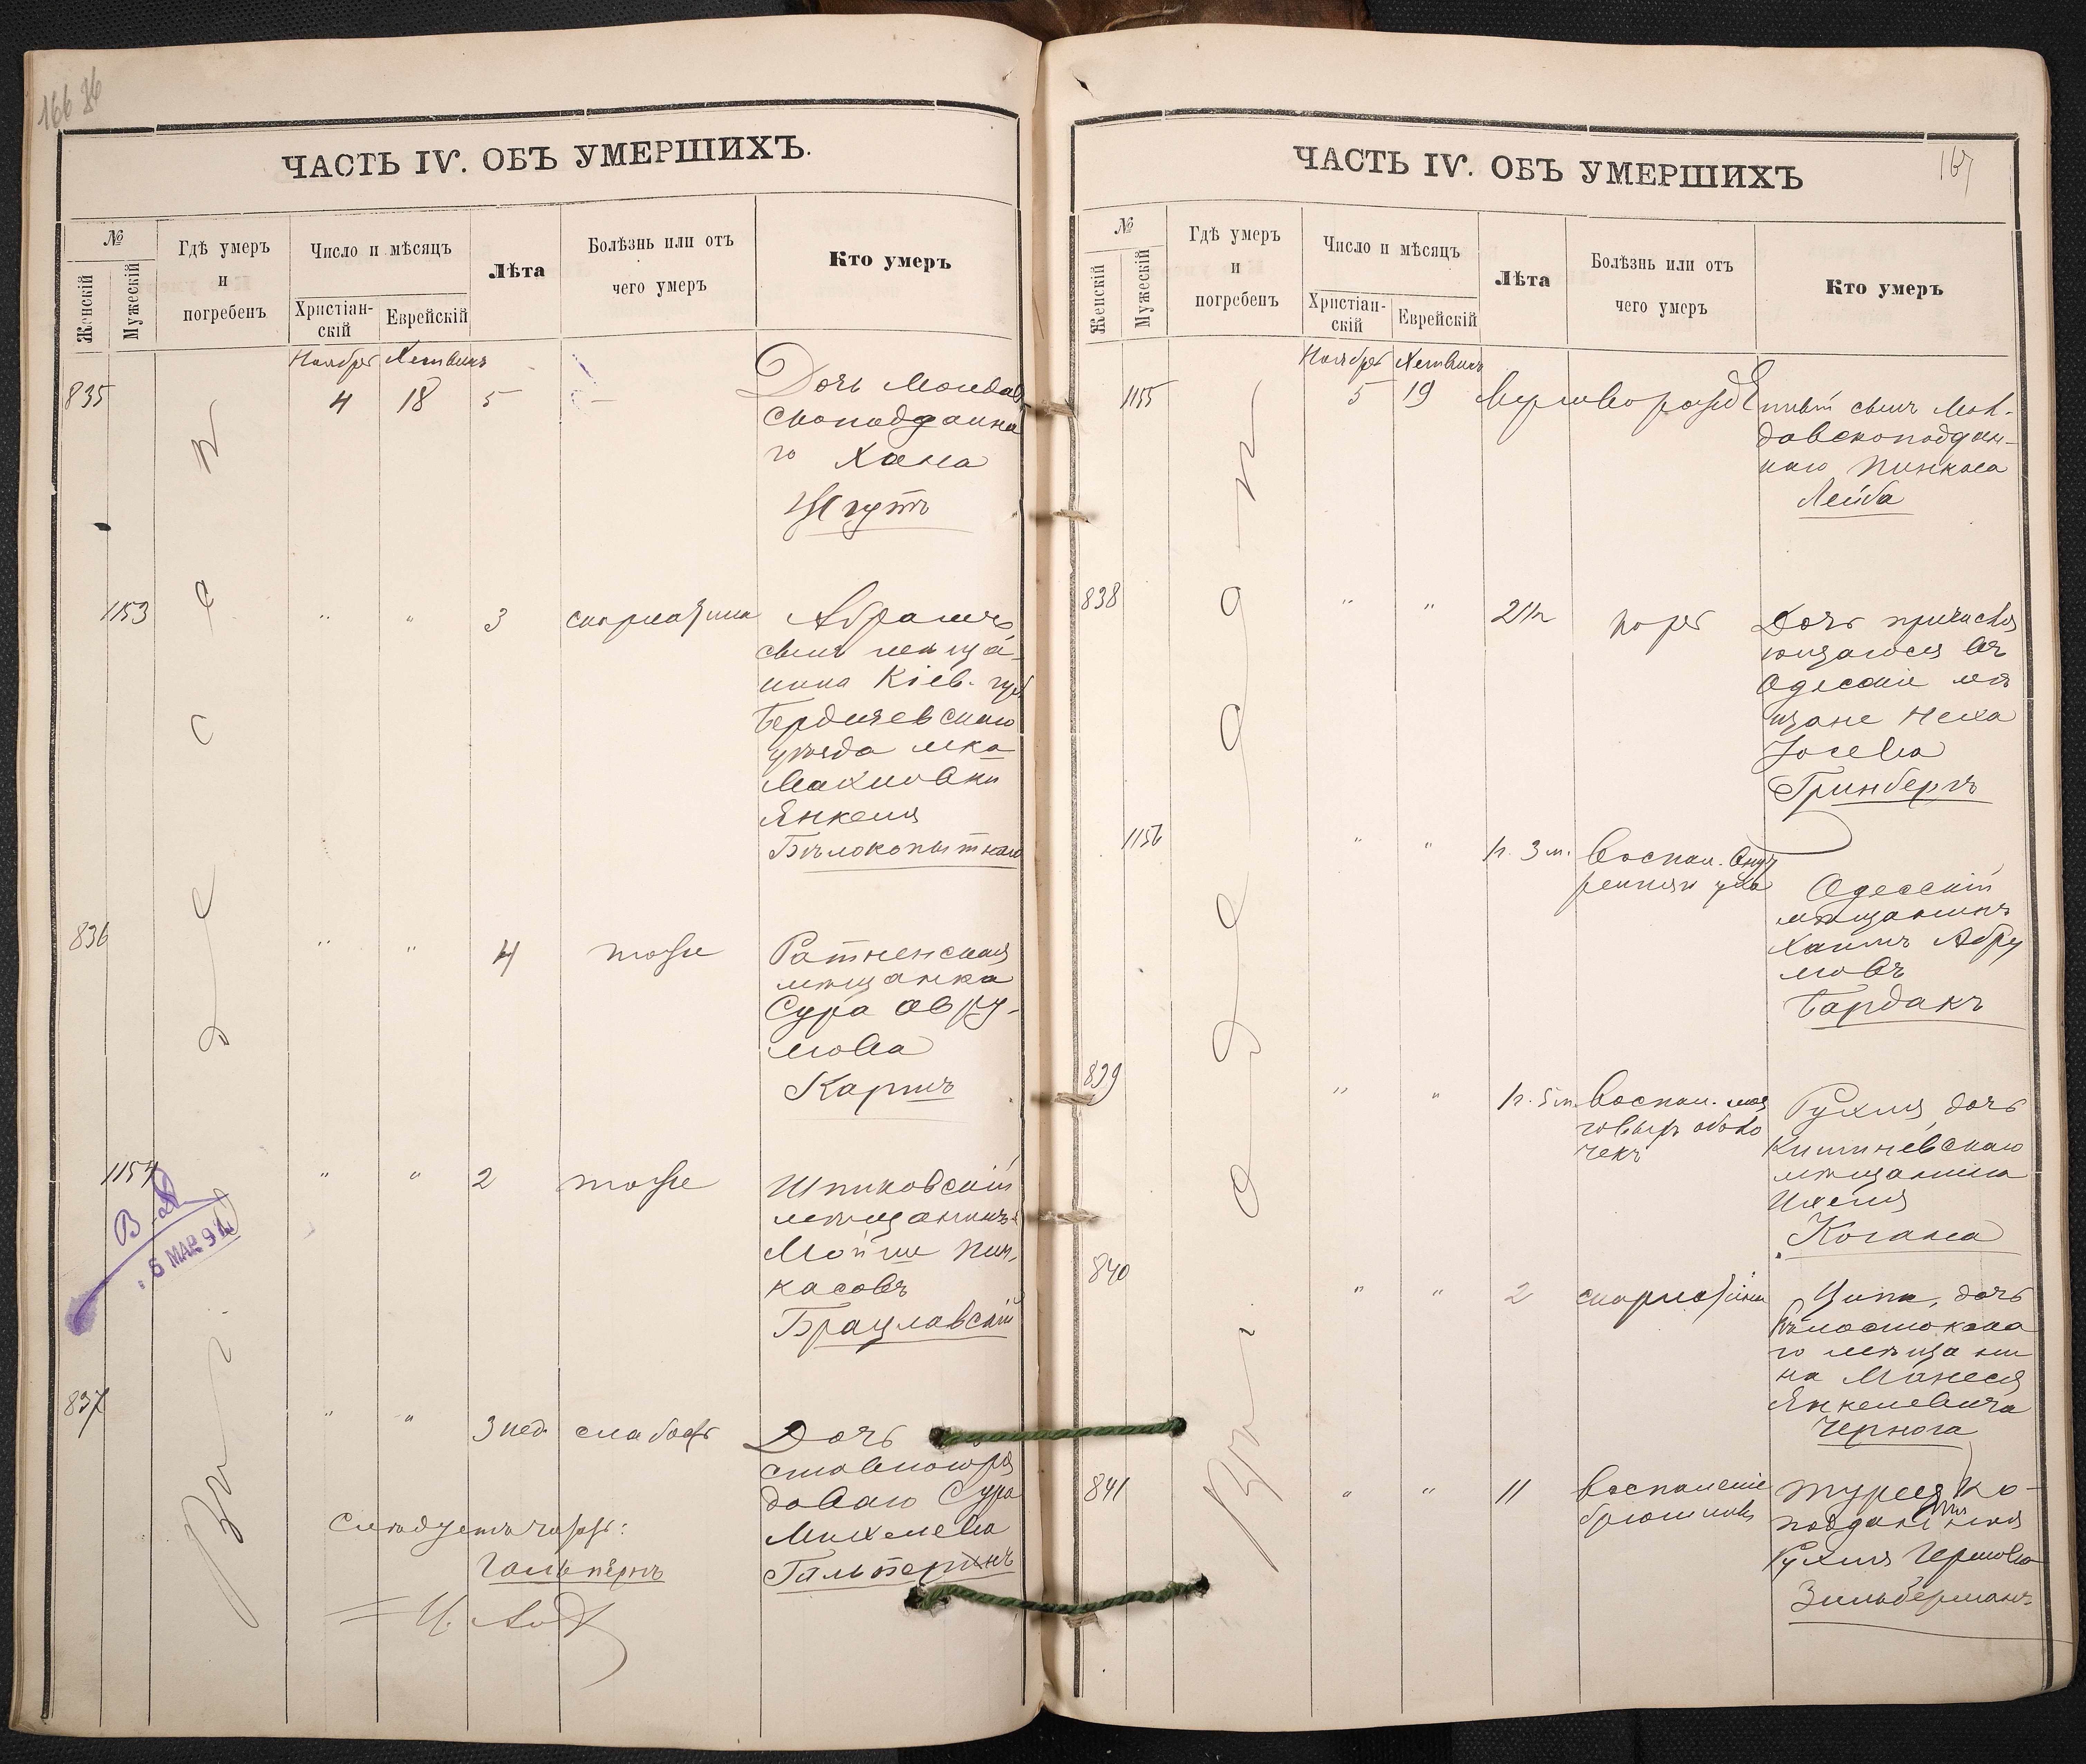 166 86
ЧАСТЬ IV. ОБЪ УМЕРШИХЪ.
№
Женскій
Мужескій
Гдѣ умеръ
и
погребенъ
Число и мѣсяцъ
Христіан-
скій
Еврейскій
Лѣта
Болѣзнь или отъ
чего умеръ
Кто умеръ
Ноября Хешвинъ
835
4 18 5 —
Дочь Молдав
скоподданна
го Хана
1153
" " 3 скарлатина
Абрамъ,
сынъ мѣща-
нина Кіев. губ
Бердичевскаго
уѣзда мка
Махновки
Янкеля
Бѣлокопытнаго
836
" " 4 тоже
Ратненская
мѣщанка
Сура Авру-
мова
1154
" " 2 тоже
Шпиковскій
мѣщанинъ
Мойше Пин-
касовъ
Брацлавскій
В. Д.
6 МАР 91
837
" " 3 нед слабость
Дочь
Сура
Михелева
Гальперинъ
Слѣдуетъ читать:
Гальперинъ
Въ Одессѣ
ЧАСТЬ IV. ОБЪ УМЕРШИХЪ
167
№
Женскій
Мужескій
Гдѣ умеръ
и
погребенъ
Число и мѣсяцъ
Христіан-
скій
Еврейскій
Лѣта
Болѣзнь или отъ
чего умеръ
Кто умеръ
Ноября Хешвинъ
1155
5 19 Мертворожде
нный сынъ Мол-
давскоподдан-
наго Пинкаса
Лейба
838
" " 2½ корь
Дочь причисля
ющагося въ
Одесскіе мѣ
щане Неха
Іосева
Гринбергъ
1156
" " 1г. 3 м. воспал. внут
реннян уха
Одесскій
мѣщанинъ
Хаимъ Абру
мовъ
Бардакъ
839
" " 1г. 5 м. воспал. моз
говыхъ оболо
чекъ
Рухля, дочь
Кишиневскаго
мѣщанина
Ихеля
Когана
840
" " 2 скарлатина
Ципа, дочь
Бѣлостокска
го мѣщани
на Манеса
Янкелевича
Чернога
841
" " 11 воспаленіе
брюшины
Турецко-
подданная
Рухля Гершкова
Зильберманъ